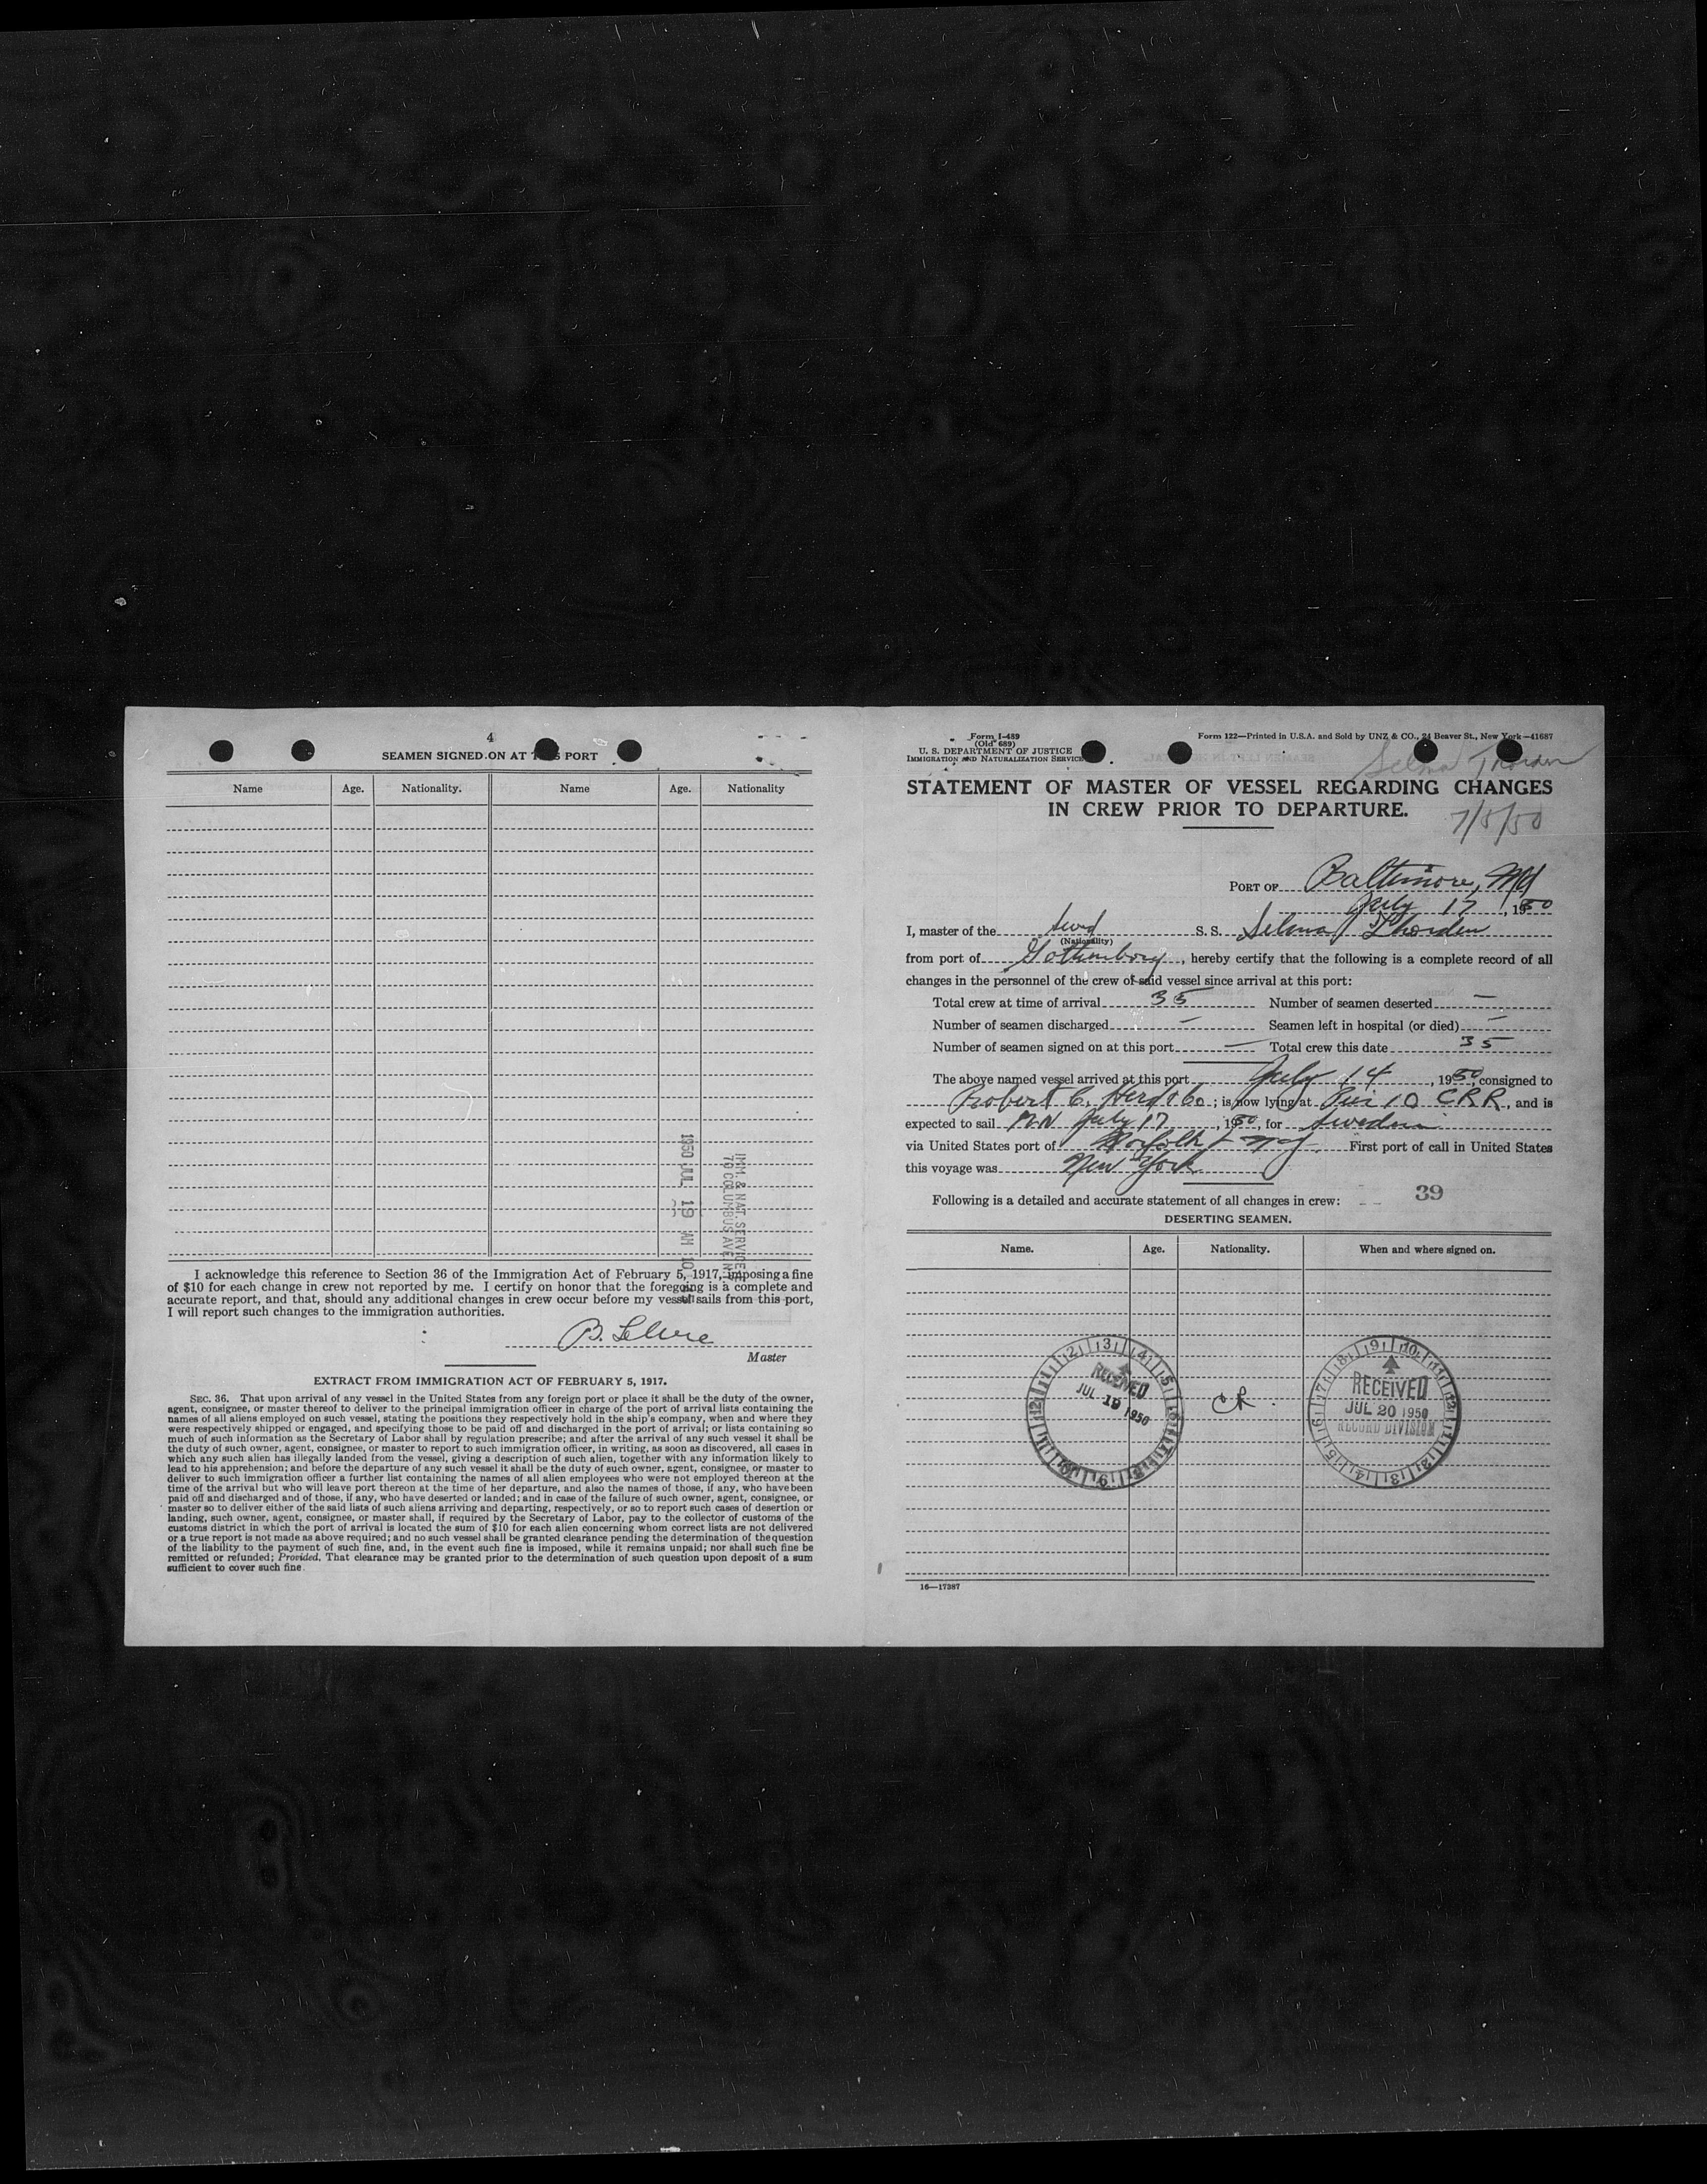 4
SEAMEN SIGNED ON AT THIS PORT
Name Age. Nationality. Name Age. Nationality
1950 JUL 19 AM 10
IMM. & NAT. SERVICE
70 COLUMBUS AVE
I acknowledge this reference to Section 36 of the Immigration Act of February 5, 1917, imposing a fine
of $10 for each change in crew not reported by me. I certify on honor that the foregoing is a complete and
accurate report, and that, should any additional changes in crew occur before my vessel sails from this port,
I will report such changes to the immigration authorities.
B.
Master
EXTRACT FROM IMMIGRATION ACT OF FEBRUARY 5, 1917.
SEC. 36. That upon arrival of any vessel in the United States from any foreign port or place it shall be the duty of the owner,
agent, consignee, or master thereof to deliver to the principal immigration officer in charge of the port of arrival lists containing the
names of all aliens employed on such vessel, stating the positions they respectively hold in the ship's company, when and where they
were respectively shipped or engaged, and specifying those to be paid off and discharged in the port of arrival; or lists containing so
much of such information as the Secretary of Labor shall by regulation prescribe; and after the arrival of any such vessel it shall be
the duty of such owner, agent, consignee, or master to report to such immigration officer, in writing, as soon as discovered, all cases in
which any such alien has illegally landed from the vessel, giving a description of such alien, together with any information likely to
lead to his apprehension; and before the departure of any such vessel it shall be the duty of such owner, agent, consignee, or master to
deliver to such immigration officer a further list containing the names of all alien employees who were not employed thereon at the
time of the arrival but who will leave port thereon at the time of her departure, and also the names of those, if any, who have been
paid off and discharged and of those, if any, who have deserted or landed; and in case of the failure of such owner, agent, consignee, or
master so to deliver either of the said lists of such aliens arriving and departing, respectively, or so to report such cases of desertion or
landing, such owner, agent, consignee, or master shall, if required by the Secretary of Labor, pay to the collector of customs of the
customs district in which the port of arrival is located the sum of $10 for each alien concerning whom correct lists are not delivered
or a true report is not made as above required; and no such vessel shall be granted clearance pending the determination of the question
of the liability to the payment of such fine, and, in the event such fine is imposed, while it remains unpaid; nor shall such fine be
remitted or refunded; Provided, That clearance may be granted prior to the determination of such question upon deposit of a sum
sufficient to cover such fine.
Form I-489
(Old 689)
U. S. DEPARTMENT OF JUSTICE
IMMIGRATION AND NATURALIZATION SERVICE
Form 122—Printed in U.S.A. and Sold by UNZ & CO., 24 Beaver St., New York—41687
Selma Thorden
STATEMENT OF MASTER OF VESSEL REGARDING CHANGES
IN CREW PRIOR TO DEPARTURE.
7/5/50
PORT OF Baltimore, Md
July 17, 1950
I, master of the Swed S. S. Selma Thorden
(Nationality)
from port of Gothenborg, hereby certify that the following is a complete record of all
changes in the personnel of the crew of said vessel since arrival at this port:
Total crew at time of arrival 35 Number of seamen deserted —
Number of seamen discharged — Seamen left in hospital (or died) —
Number of seamen signed on at this port — Total crew this date 35
The above named vessel arrived at this port July 14, 1950, consigned to
Robert C. Herd & Co; is now lying at Pier 10 CRR, and is
expected to sail July 17, 1950, for Sweden
via United States port of Norfolk & NY. First port of call in United States
this voyage was New York
Following is a detailed and accurate statement of all changes in crew: 39
DESERTING SEAMEN.
Name. Age. Nationality. When and where signed on.
RECEIVED
JUL 19 1950
CR.
RECEIVED
JUL 20 1950
RECORD DIVISION
16—17387